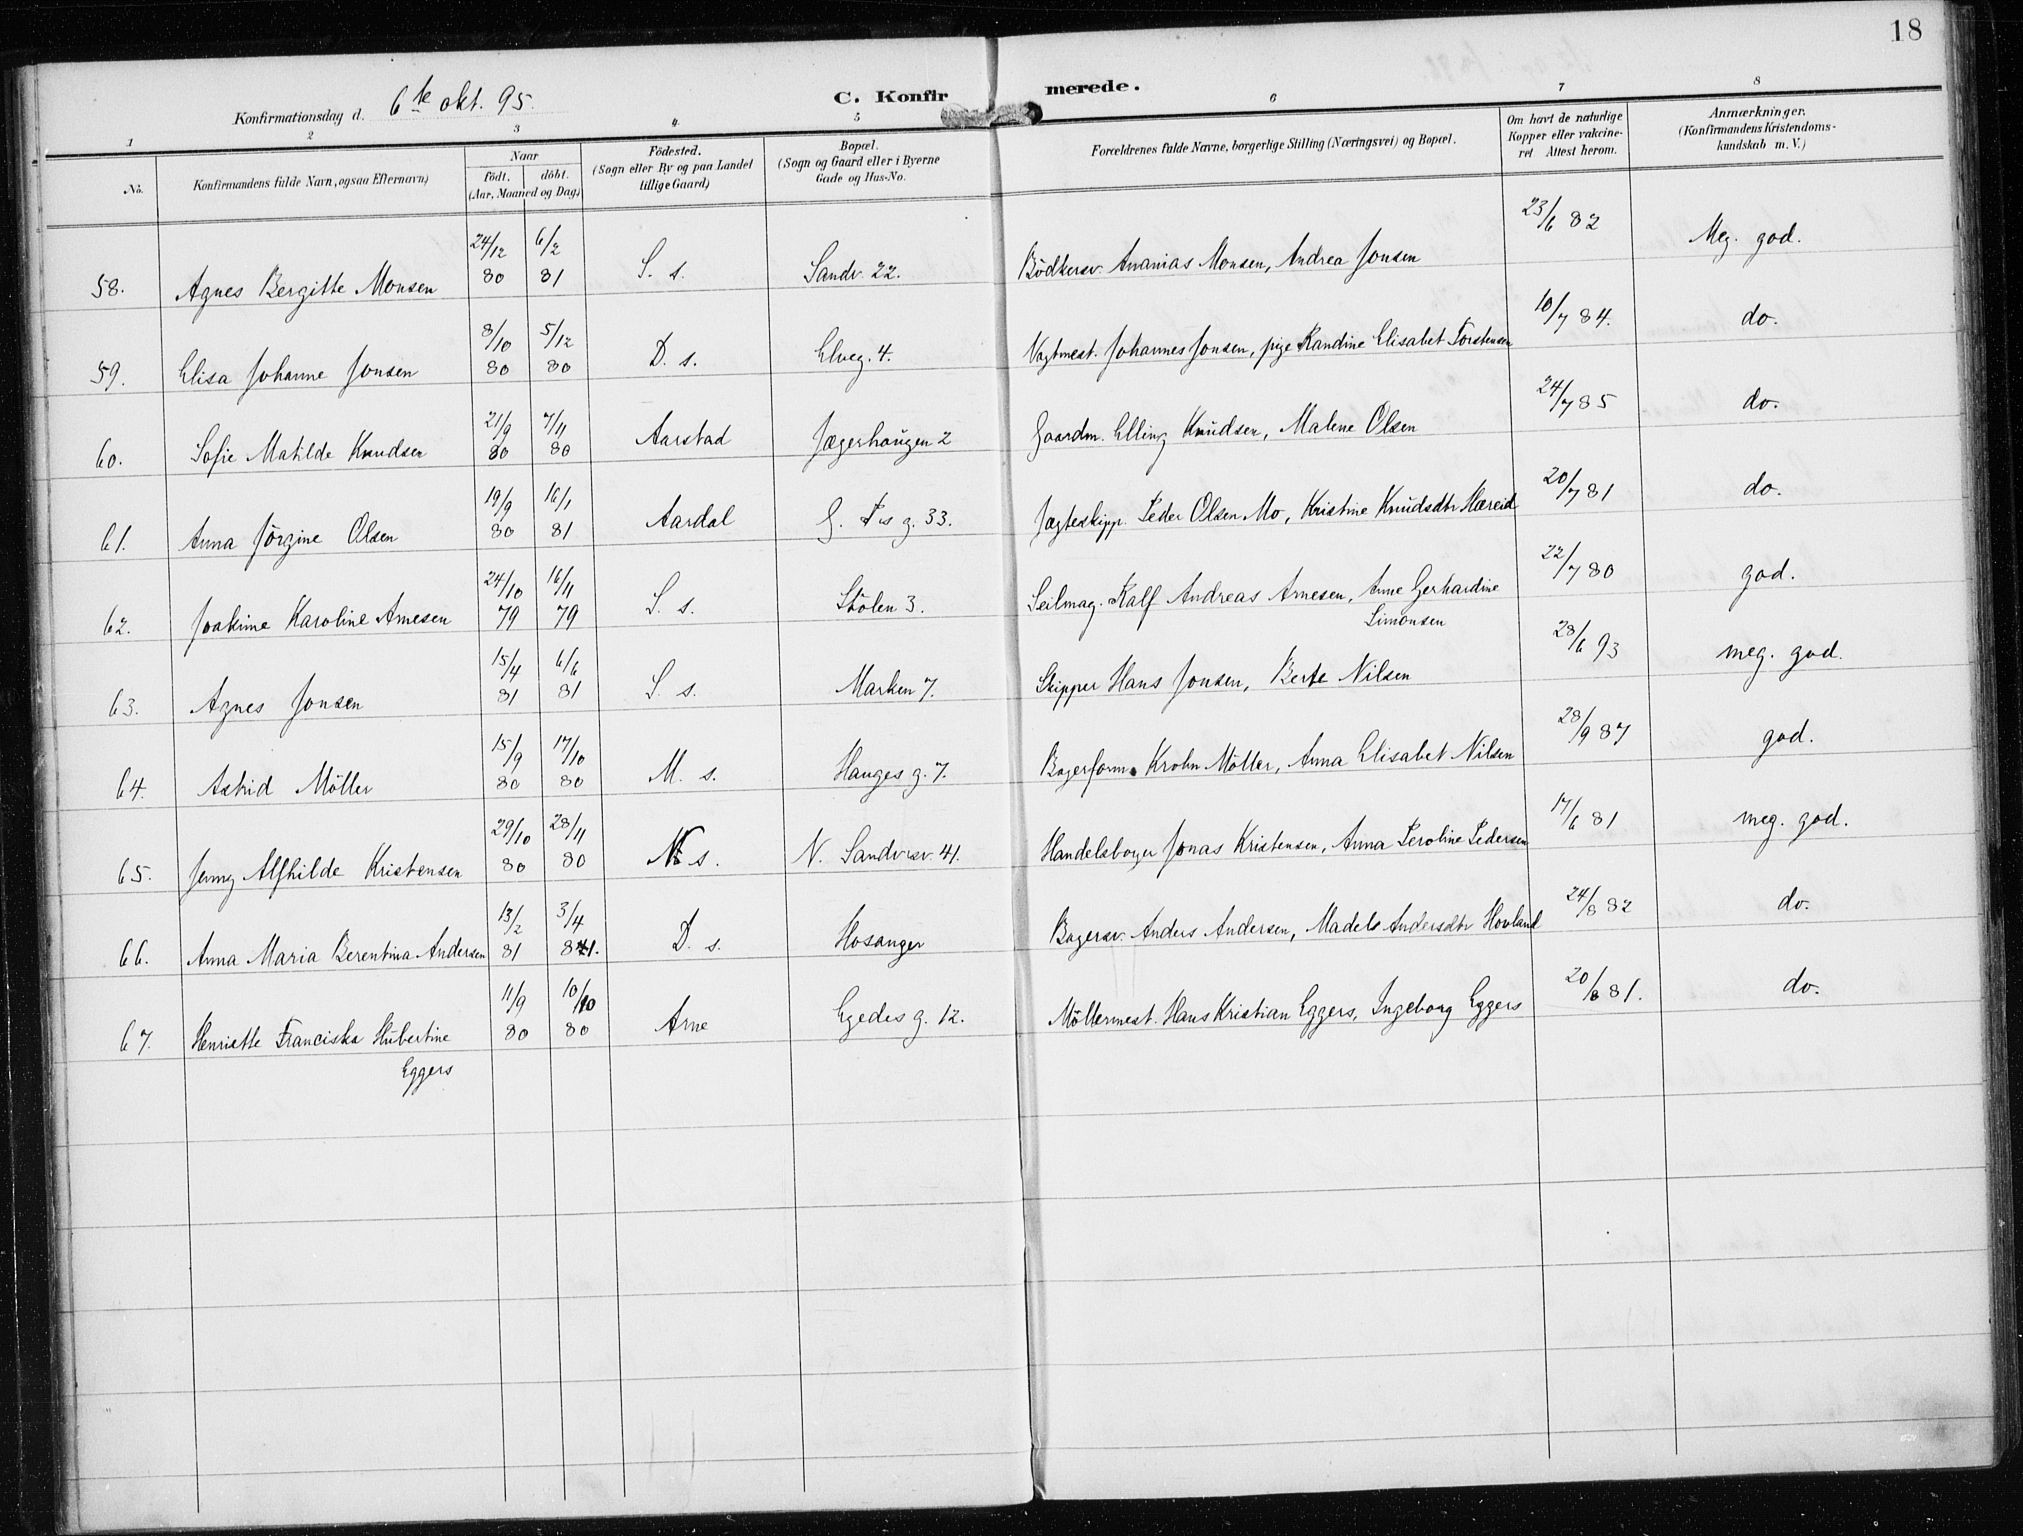 18
Konfirmationsdag d. 6te okt. 95.
C. Konfirmerede.
1 2 3 4 5 6 7 8
No. Konfirmandens fulde Navn, ogsaa Efternavn) Naar födt. döbt. (Aar, Maaned og Dag) Födested. (Sogn eller By og paa Landet tillige Gaard) Bopæl. (Sogn og Gaard eller i Byerne Gade og Hus-No. Forældrenes fulde Navne, borgerlige Stilling (Næringsvei) og Bopæl. Om havt de naturlige Kopper eller vakcineret Attest herom. Anmærkninger. (Konfirmandens Kristendomskundskab m.V.)
58. Agnes Bergitte Monsen 24/12 80 6/2 81 S. s. Sandv. 22. Bödkersv. Ananias Monsen, Andrea Jonsen 23/6 82 Meg. god.
59. Elisa Johanne Jonsen 8/10 80 5/12 80 D. s. Elveg. 4. Vagtmest. Johannes Jonsen, pige Randine Elisabet Torstensen 10/7 84. do.
60. Sofie Matilde Knudsen 21/9 80 7/11 80 Aarstad Jægerhaugen 2 Gaardm. Elling Knudsen, Malene Olsen 24/7 85 do.
61. Anna Jörgine Olsen 19/9 80 16/1 81 Aardal g. 33. Jægteskipp. Peder Olsen Mo, Kristine Knudsdtr Hæreid 20/7 81 do.
62. Joakime Karoline Arnesen 24/10 79 16/11 79 S. s. Stölen 3. Seilmag. Ralf Andreas Arnesen, Anne Gerhardine
Simonsen 22/7 80 god.
63. Agnes Jonsen 15/4 81 6/6 81 S. s. Marken 7. Skipper Hans Jonsen, Berte Nilsen 28/6 93 meg. god.
64. Astrid Möller 15/9 80 17/10 80 M. s. Hauges g. 7. Bagerform. Krohn Möller, Anna Elisabet Nilsen 28/9 87 god.
65. Jenny Alfhilde Kristensen 29/10 80 28/11 80 N. s. N. Sandv.sv. 41. Handelsborger Jonas Kristensen, Anna Peroline Pedersen 17/6 81 meg. god.
66. Anna Maria Berentina Andersen 81 13/2 3/4 81. D. s. Hosanger Bagersv. Anders Andersen, Madels Andersdtr Hovland 24/8 82 do.
67. Henriette Franciska Hubertine
Eggers 11/9 80 10/10 80 Arne Egedes g. 12. Möllermest. Hans Kristian Eggers, Ingeborg Eggers 20/8 81. do.